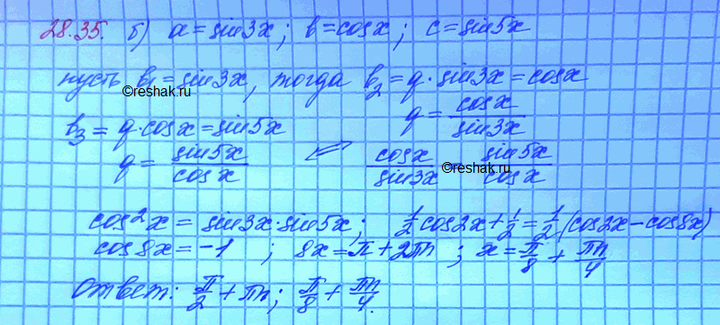 28.35. б) a = sin3x; b = cosx; c = sin5x
пусть b₁ = sin3x, тогда b₂ = q · sin3x = cosx
©reshak.ru
q = cosx/sin3x
b₃ = q · cosx = sin5x
q = sin5x/cosx ⇔ cosx/sin3x sin5x/cosx
©reshak.ru
cos²x = sin3x · sin5x; 1/2 cos2x + 1/2 = 1/2 (cos2x − cos8x)
cos8x = −1; 8x = π + 2πn; x = π/8 + πn/4
Ответ: π/2 + πn; π/8 + πn/4.